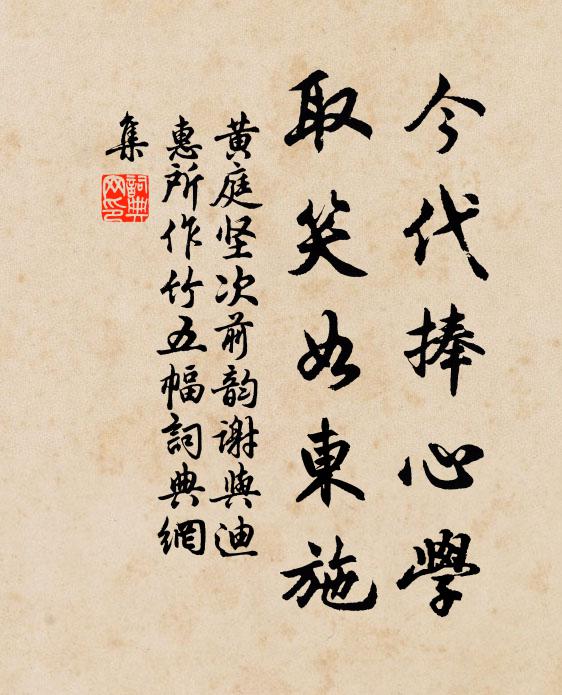 今代捧心學
取笑如東施
黄庭坚次前韵谢與迪
惠所作竹五幅詞典網
集
詞典
网印